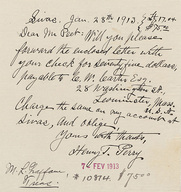 Sivas, Jan. 28th 1913. £17.04
$75.00
Dear Mr. Peet: Will you please
forward the enclosed letter with
your check for seventy five dollars,
payable to C. W. Carter Esq.
28 Washington St.
Leominster, Mass.
Charge the same on my account at
Sivas, and oblige
Yours with thanks,
Henry T. Perry
7 FEV 1913
# 10894 $75.00